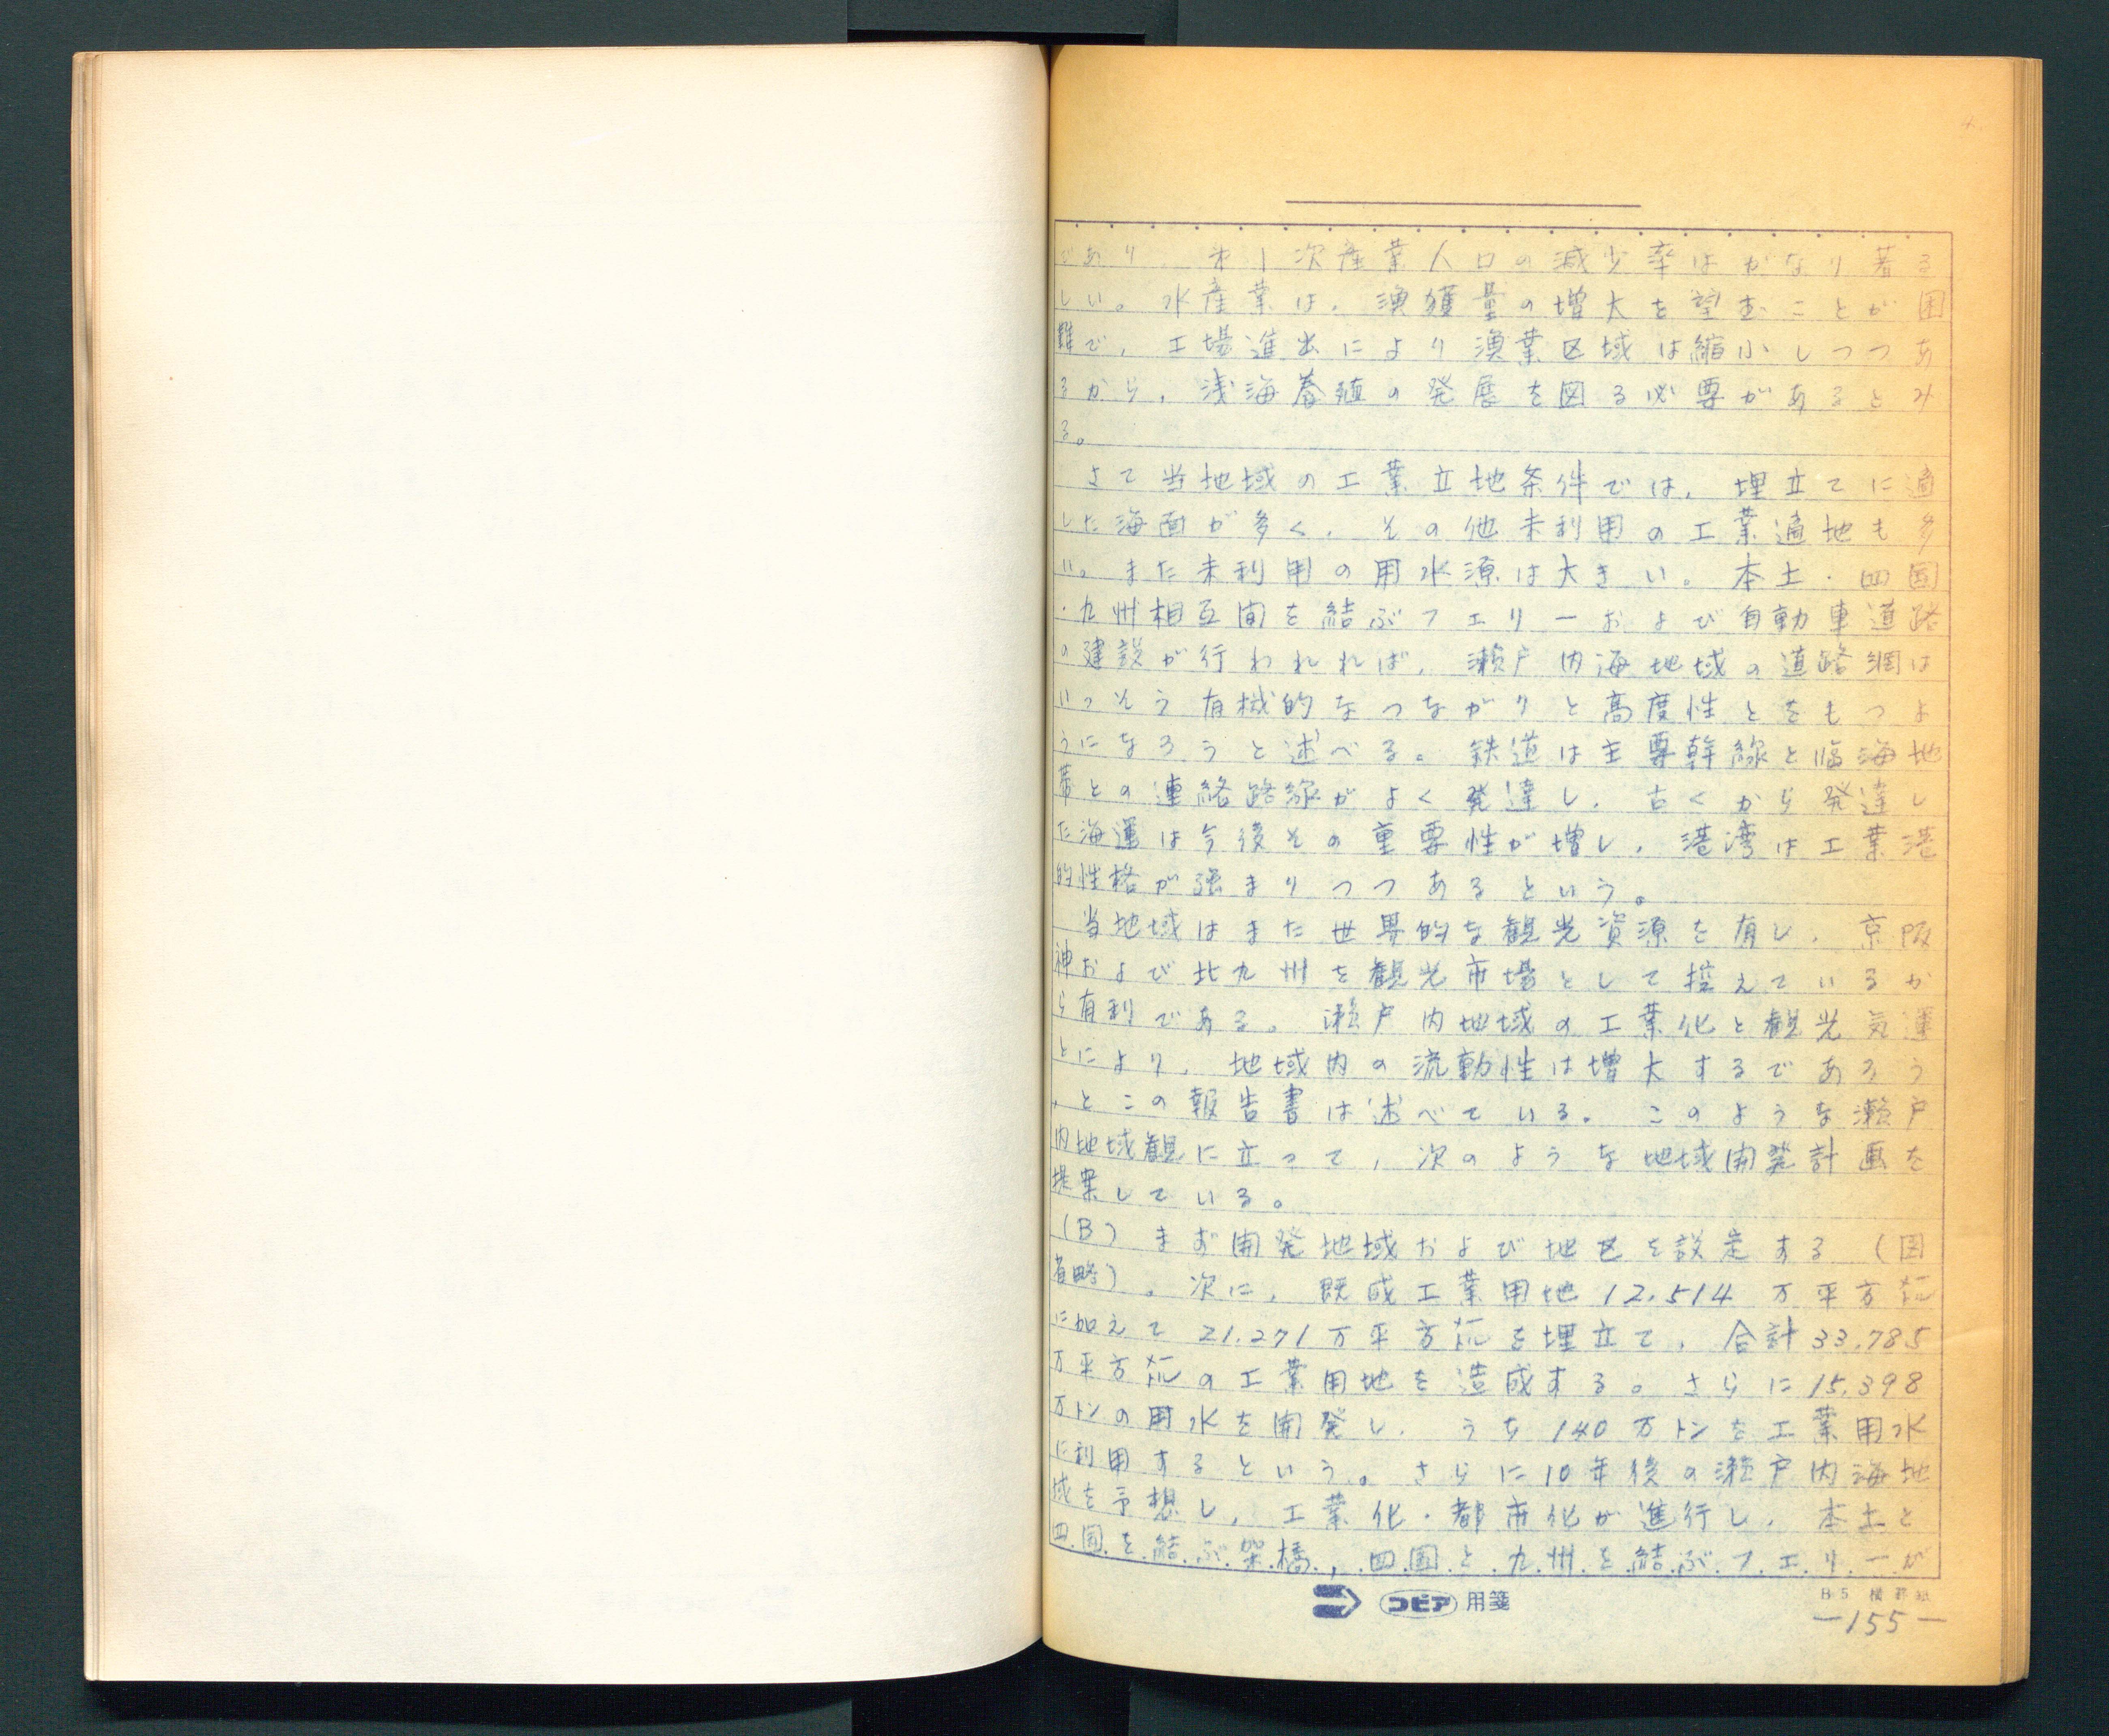 であり、第1次産業人口の減少率はかなり著る
しい。水産業は、漁獲量の増大を望むことが困
難で、工場進出により漁業区域は縮小しつつあ
るから、浅海養殖の発展を図る必要があるとみ
る。
さて当地域の工業立地条件では、埋立てに適
した海面が多く、その他未利用の工業適地も多
い。また未利用の用水源は大きい。本土・四国
・九州相互間を結ぶフェリーおよび自動車道路
の建設が行われれば、瀬戸内海地域の道路網は
いっそう有機的なつながりと高度性とをもつよ
うになろうと述べる。鉄道は主要幹線と臨海地
帯との連絡路線がよく発達し、古くから発達し
た海運は今後その重要性が増し、港湾は工業港
的性格が強まりつつあるという。
当地域はまた世界的な観光資源を有し、京阪
神および北九州を観光市場として控えているか
ら有利である。瀬戸内地域の工業化と観光気運
とにより、地域内の流動性は増大するであろう
、とこの報告書は述べている。このような瀬戸
内地域観に立って、次のような地域開発計画を
提案している。
(B) まず開発地域および地区を設定する(図
省略)。次に、既成工業用地12,514万平方メートル
に加えて21,271万平方メートルを埋立て、合計33,785
万平方メートルの工業用地を造成する。さらに15,398
万トンの用水を開発し、うち140万トンを工業用水
に利用するという。さらに10年後の瀬戸内海地
域を予想し、工業化・都市化が進行し、本土と
四国を結ぶ架橋、四国と九州を結ぶフェリーが
コピア 用箋
B5 横罫紙
—155—